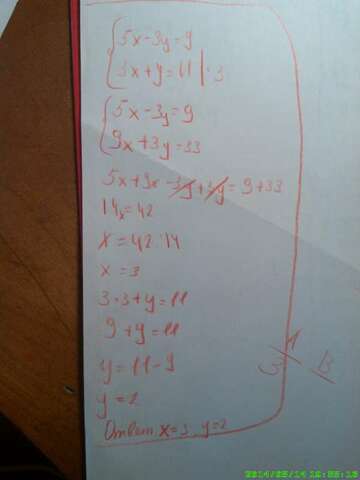 5x-3y=9
3x+y=11 |·3
5x-3y=9
9x+3y=33
5x+9x-3y+3y=9+33
14x=42
x=42:14
x=3
3·3+y=11
9+y=11
y=11-9
y=2
Ответ: x=3, y=2